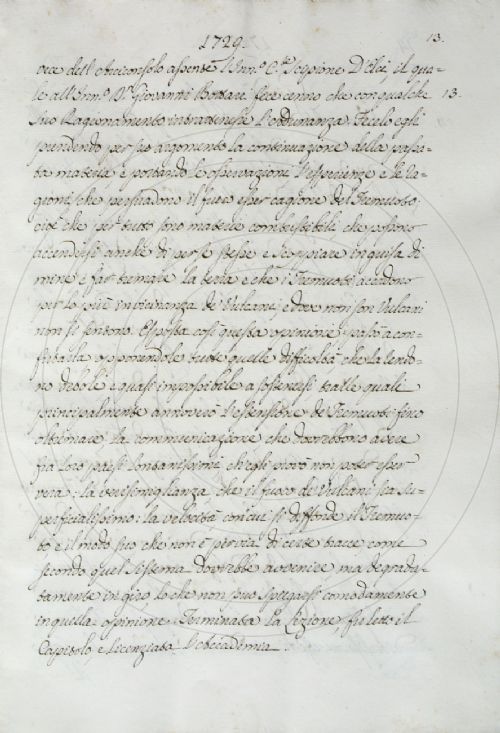 1729. 13.
vece dell'Arciconsolo assente l'Inn.º C.te Scipione D'Elci, il qua-
le all'Inn.º D.r Giovanni Bottari fece cenno che con qualche 13.
suo Ragionamento intrattenesse l'adunanza. Fecelo egli
prendendo per suo argomento la continuazione della passa-
ta materia, e portando le osservazioni l'esperienze e le ra-
gioni, che persuadono il fuoco esser cagione del Tremuoto:
cioè che per tutto sono materie combustibili che possono
accendersi anche di per se stesse e scoppiare in guisa di
mine e far tremare la terra e che i Tremuoti accadono
per lo più in vicinanza de' Vulcani, e dove non son Vulcani
non si sentono. Esposta così questa opinione, passò a con-
futarla opponendole tutte quelle difficoltà che la rendo-
no debole e quasi impossibile a sostenersi tralle quali
principalmente annoverò l'estensione de' Tremuoti fino
oltremare: la communicazione che dovrebbono avere
fra loro paesi lontanissimi ch'egli provò non poter esser
vera: la verisimiglianza che il fuoco de' Vulcani sia su-
perficialissimo: la velocità con cui si diffonde il Tremuo-
to e il modo suo che non è per via di certe tracce come
secondo quel sistema dovrebbe avvenire, ma degrada-
tamente in giro lo che non può spiegarsi comodamente
in quella opinione. Terminata la Lezione, fu letto il
Capitolo, e licenziata l'Accademia.